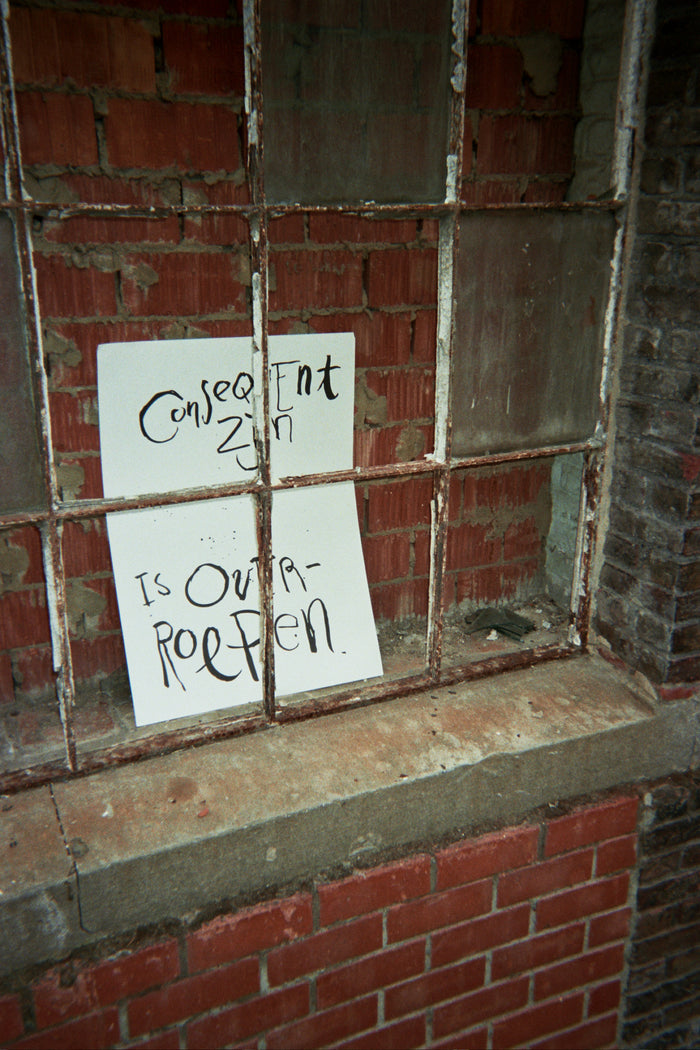 ConseqUEnt
Zijn
Is OVER-
RoepEn.